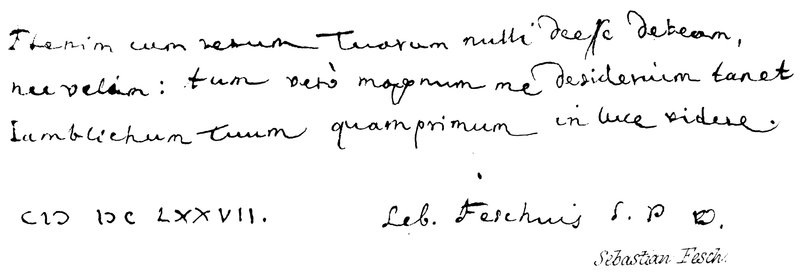 Etenim cum rerum Tuarum nulli deesse debeam,
nec velim: tum verò magnum me desiderium tenet
Iamblichum tuum quamprimum in luce videre.
CIƆ IƆC LXXVII. Seb. Feschius S. P. D.
Sebastian Fesch.